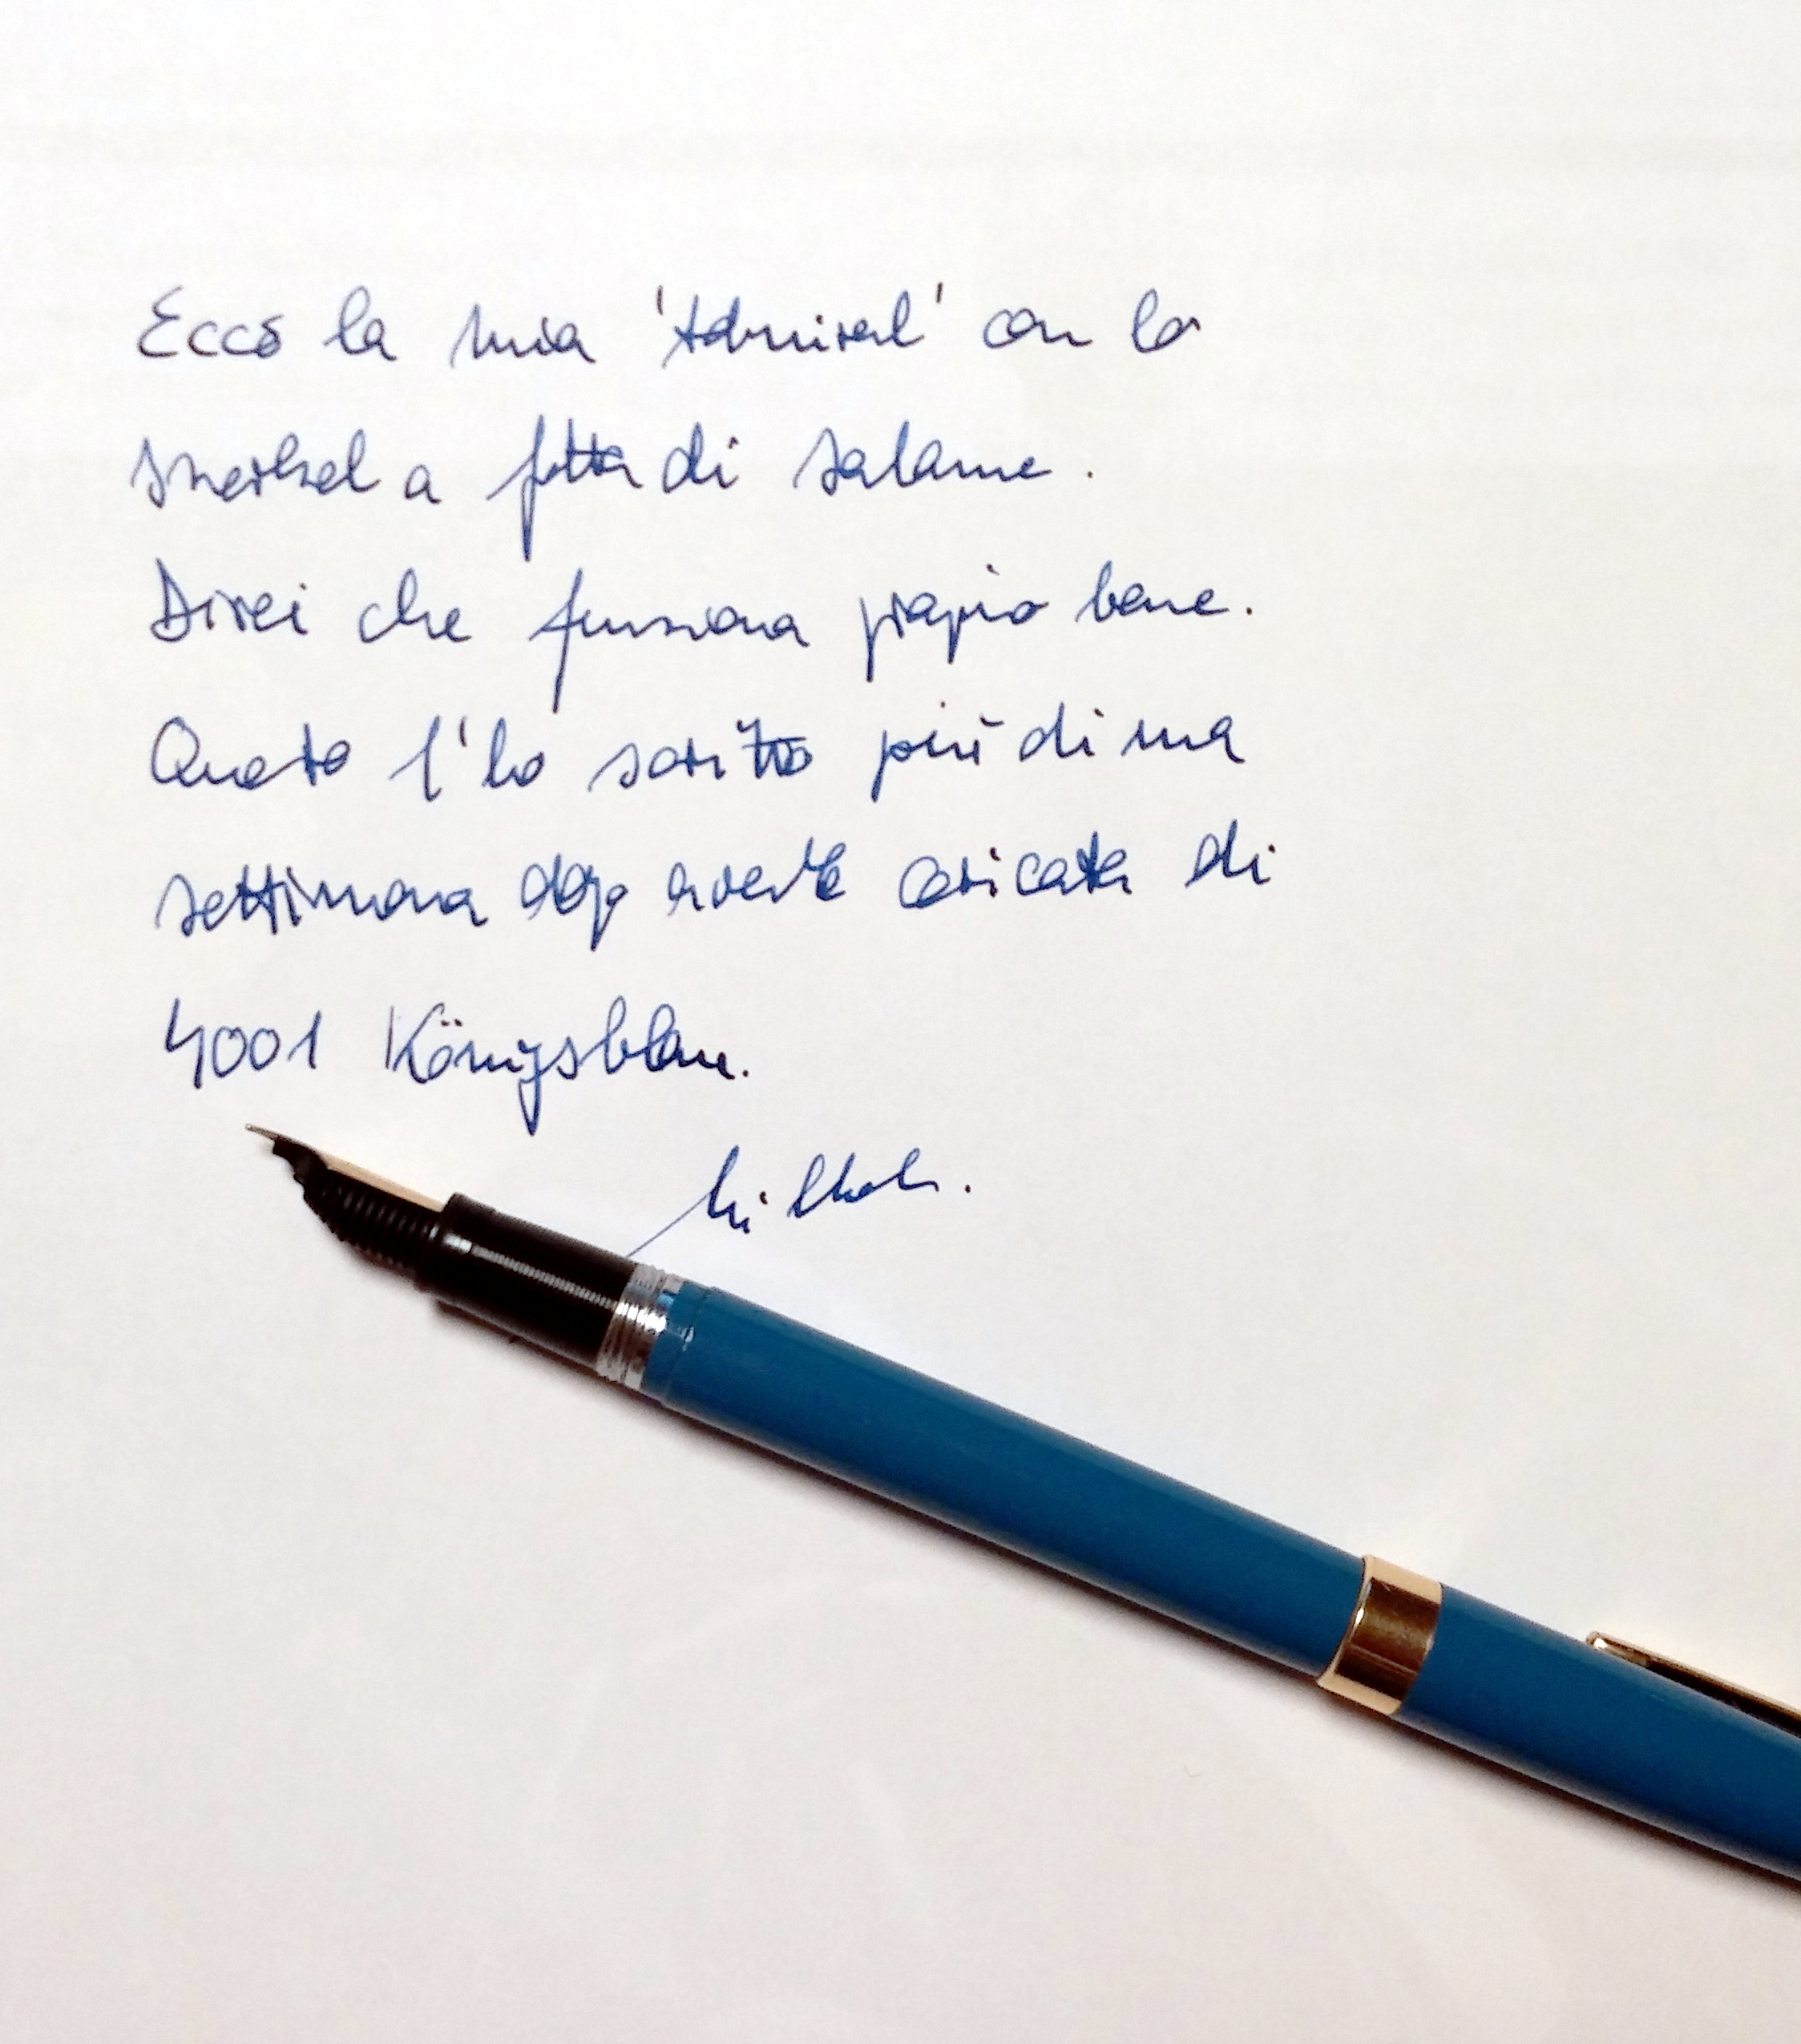 Ecco la mia 'Admiral' con lo
snorkel a fetta di salame.
Direi che funziona proprio bene.
Questo l'ho scritto più di una
settimana dopo averla caricata di
4001 Königsblau.